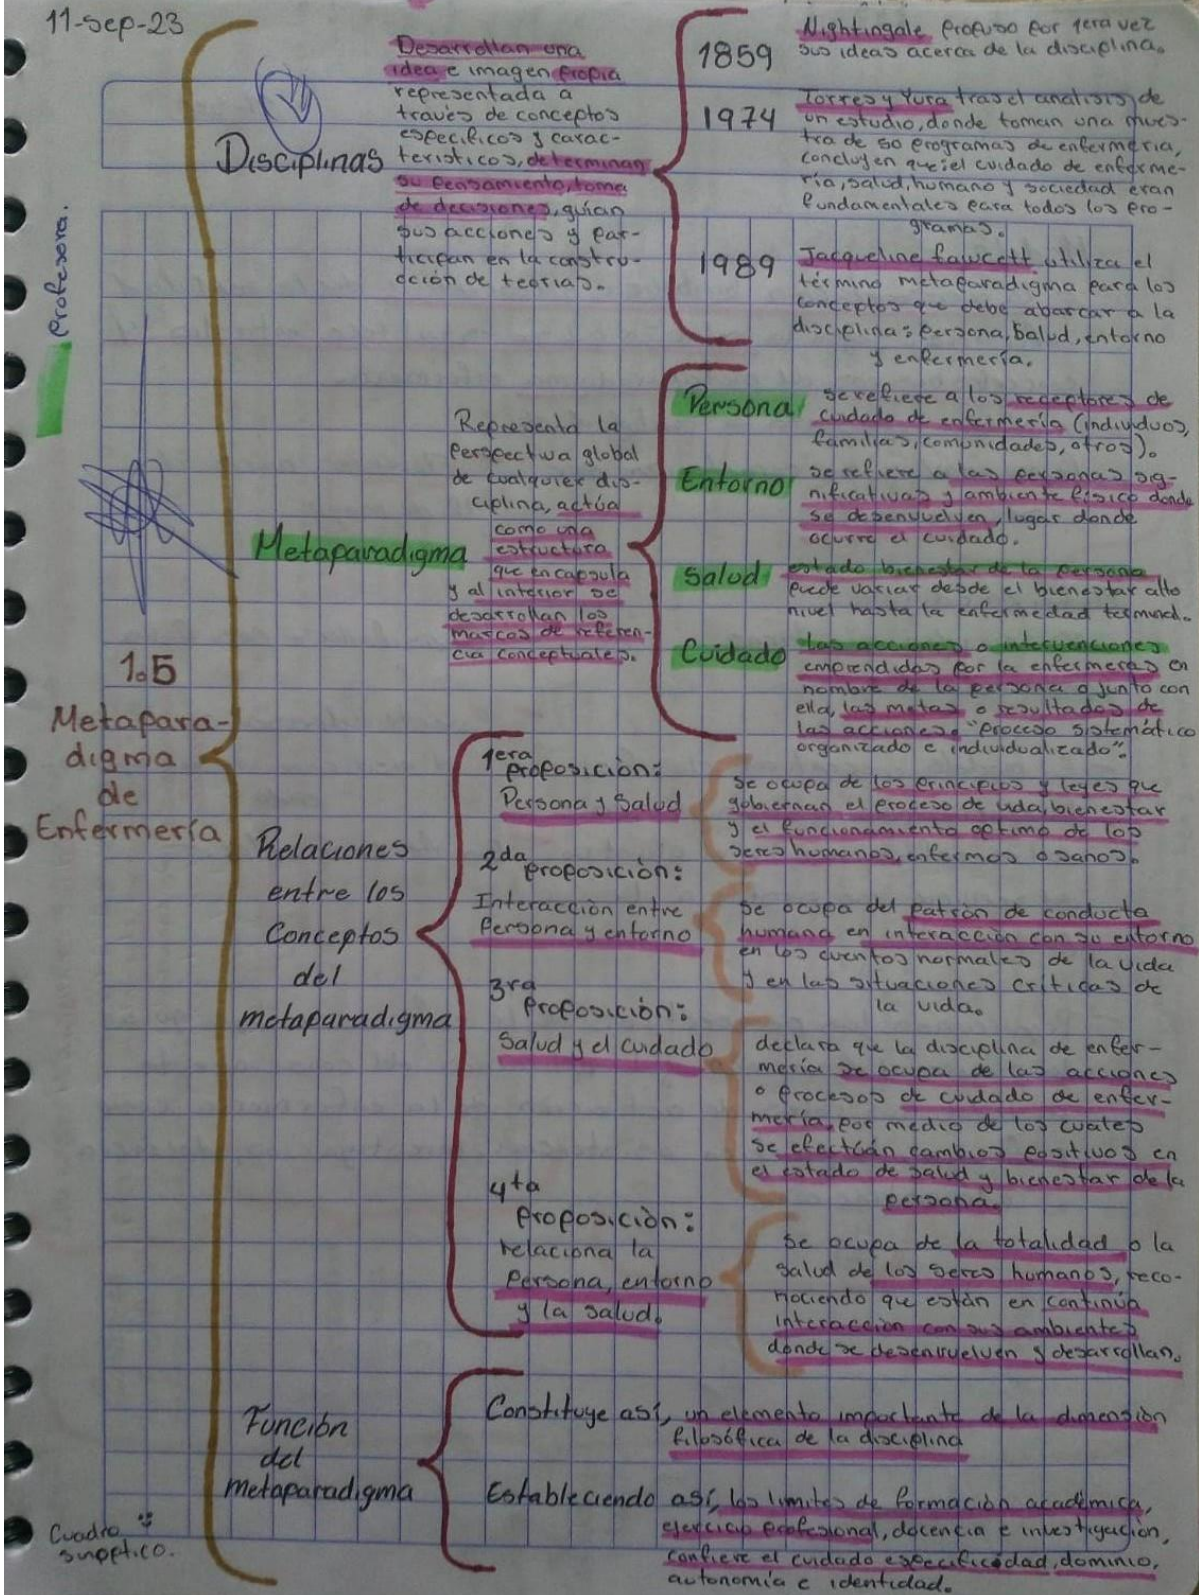 11-sep-23
Profesora.
1.5
Metapara-
digma
de
Enfermería
Disciplinas
Desarrollan una
idea e imagen propia
representada a
través de conceptos
específicos y carac-
terísticos, determinan
su pensamiento, toma
de decisiones, guían
sus acciones y par-
ticipan en la constru-
cción de teorías.
1859
Nightingale propuso por 1era vez
sus ideas acerca de la disciplina.
1974
Torres y Yura tras el analisis de
un estudio, donde toman una mues-
tra de 50 programas de enfermería,
concluyen que: el cuidado de enferme-
ría, salud, humano y sociedad eran
fundamentales para todos los pro-
gramas.
1989
Jacqueline fawcett utiliza el
término metaparadigma para los
conceptos que debe abarcar a la
disciplina: persona, salud, entorno
y enfermería.
Metaparadigma
Representa la
perspectiva global
de cualquier dis-
ciplina, actúa
como una
estructura
que encapsula
y al interior se
desarrollan los
marcos de referen-
cia conceptuales.
Persona
se refiere a los receptores de
cuidado de enfermería (individuos,
familias, comunidades, otros).
Entorno
se refiere a las personas sig-
nificativas y ambiente físico donde
se desenvuelven, lugar donde
ocurre el cuidado.
Salud
estado bienestar de la persona
puede variar desde el bienestar alto
nivel hasta la enfermedad terminal.
Cuidado
Las acciones o intervenciones
emprendidas por la enfermeras en
nombre de la persona o junto con
ella, las metas o resultados de
las acciones. "Proceso sistemático
organizado e individualizado".
Relaciones
entre los
Conceptos
del
metaparadigma
1era
proposición:
Persona y Salud
se ocupa de los principios y leyes que
gobiernan el proceso de vida, bienestar
y el funcionamiento optimo de los
seres humanos, enfermos o sanos.
2da
proposición:
Interacción entre
Persona y entorno
se ocupa del patrón de conducta
humana en interacción con su entorno
en los eventos normales de la vida
y en las situaciones críticas de
la vida.
3ra
Proposición:
Salud y el cuidado
declara que la disciplina de enfer-
mería se ocupa de las acciones
o procesos de cuidado de enfer-
mería, por medio de los cuales
se efectúan cambios positivos en
el estado de salud y bienestar de la
persona.
4ta
Proposición:
relaciona la
Persona, entorno
y la salud.
se ocupa de la totalidad o la
salud de los seres humanos, reco-
nociendo que están en continúa
interacción con sus ambientes
donde se desenvuelven y desarrollan.
Función
del
metaparadigma
Constituye así, un elemento importante de la dimensión
filosófica de la disciplina
Estableciendo así, los límites de formación académica,
ejercicio profesional, docencia e investigación,
confiere el cuidado especificidad, dominio,
autonomía e identidad.
Cuadro
sinoptico.